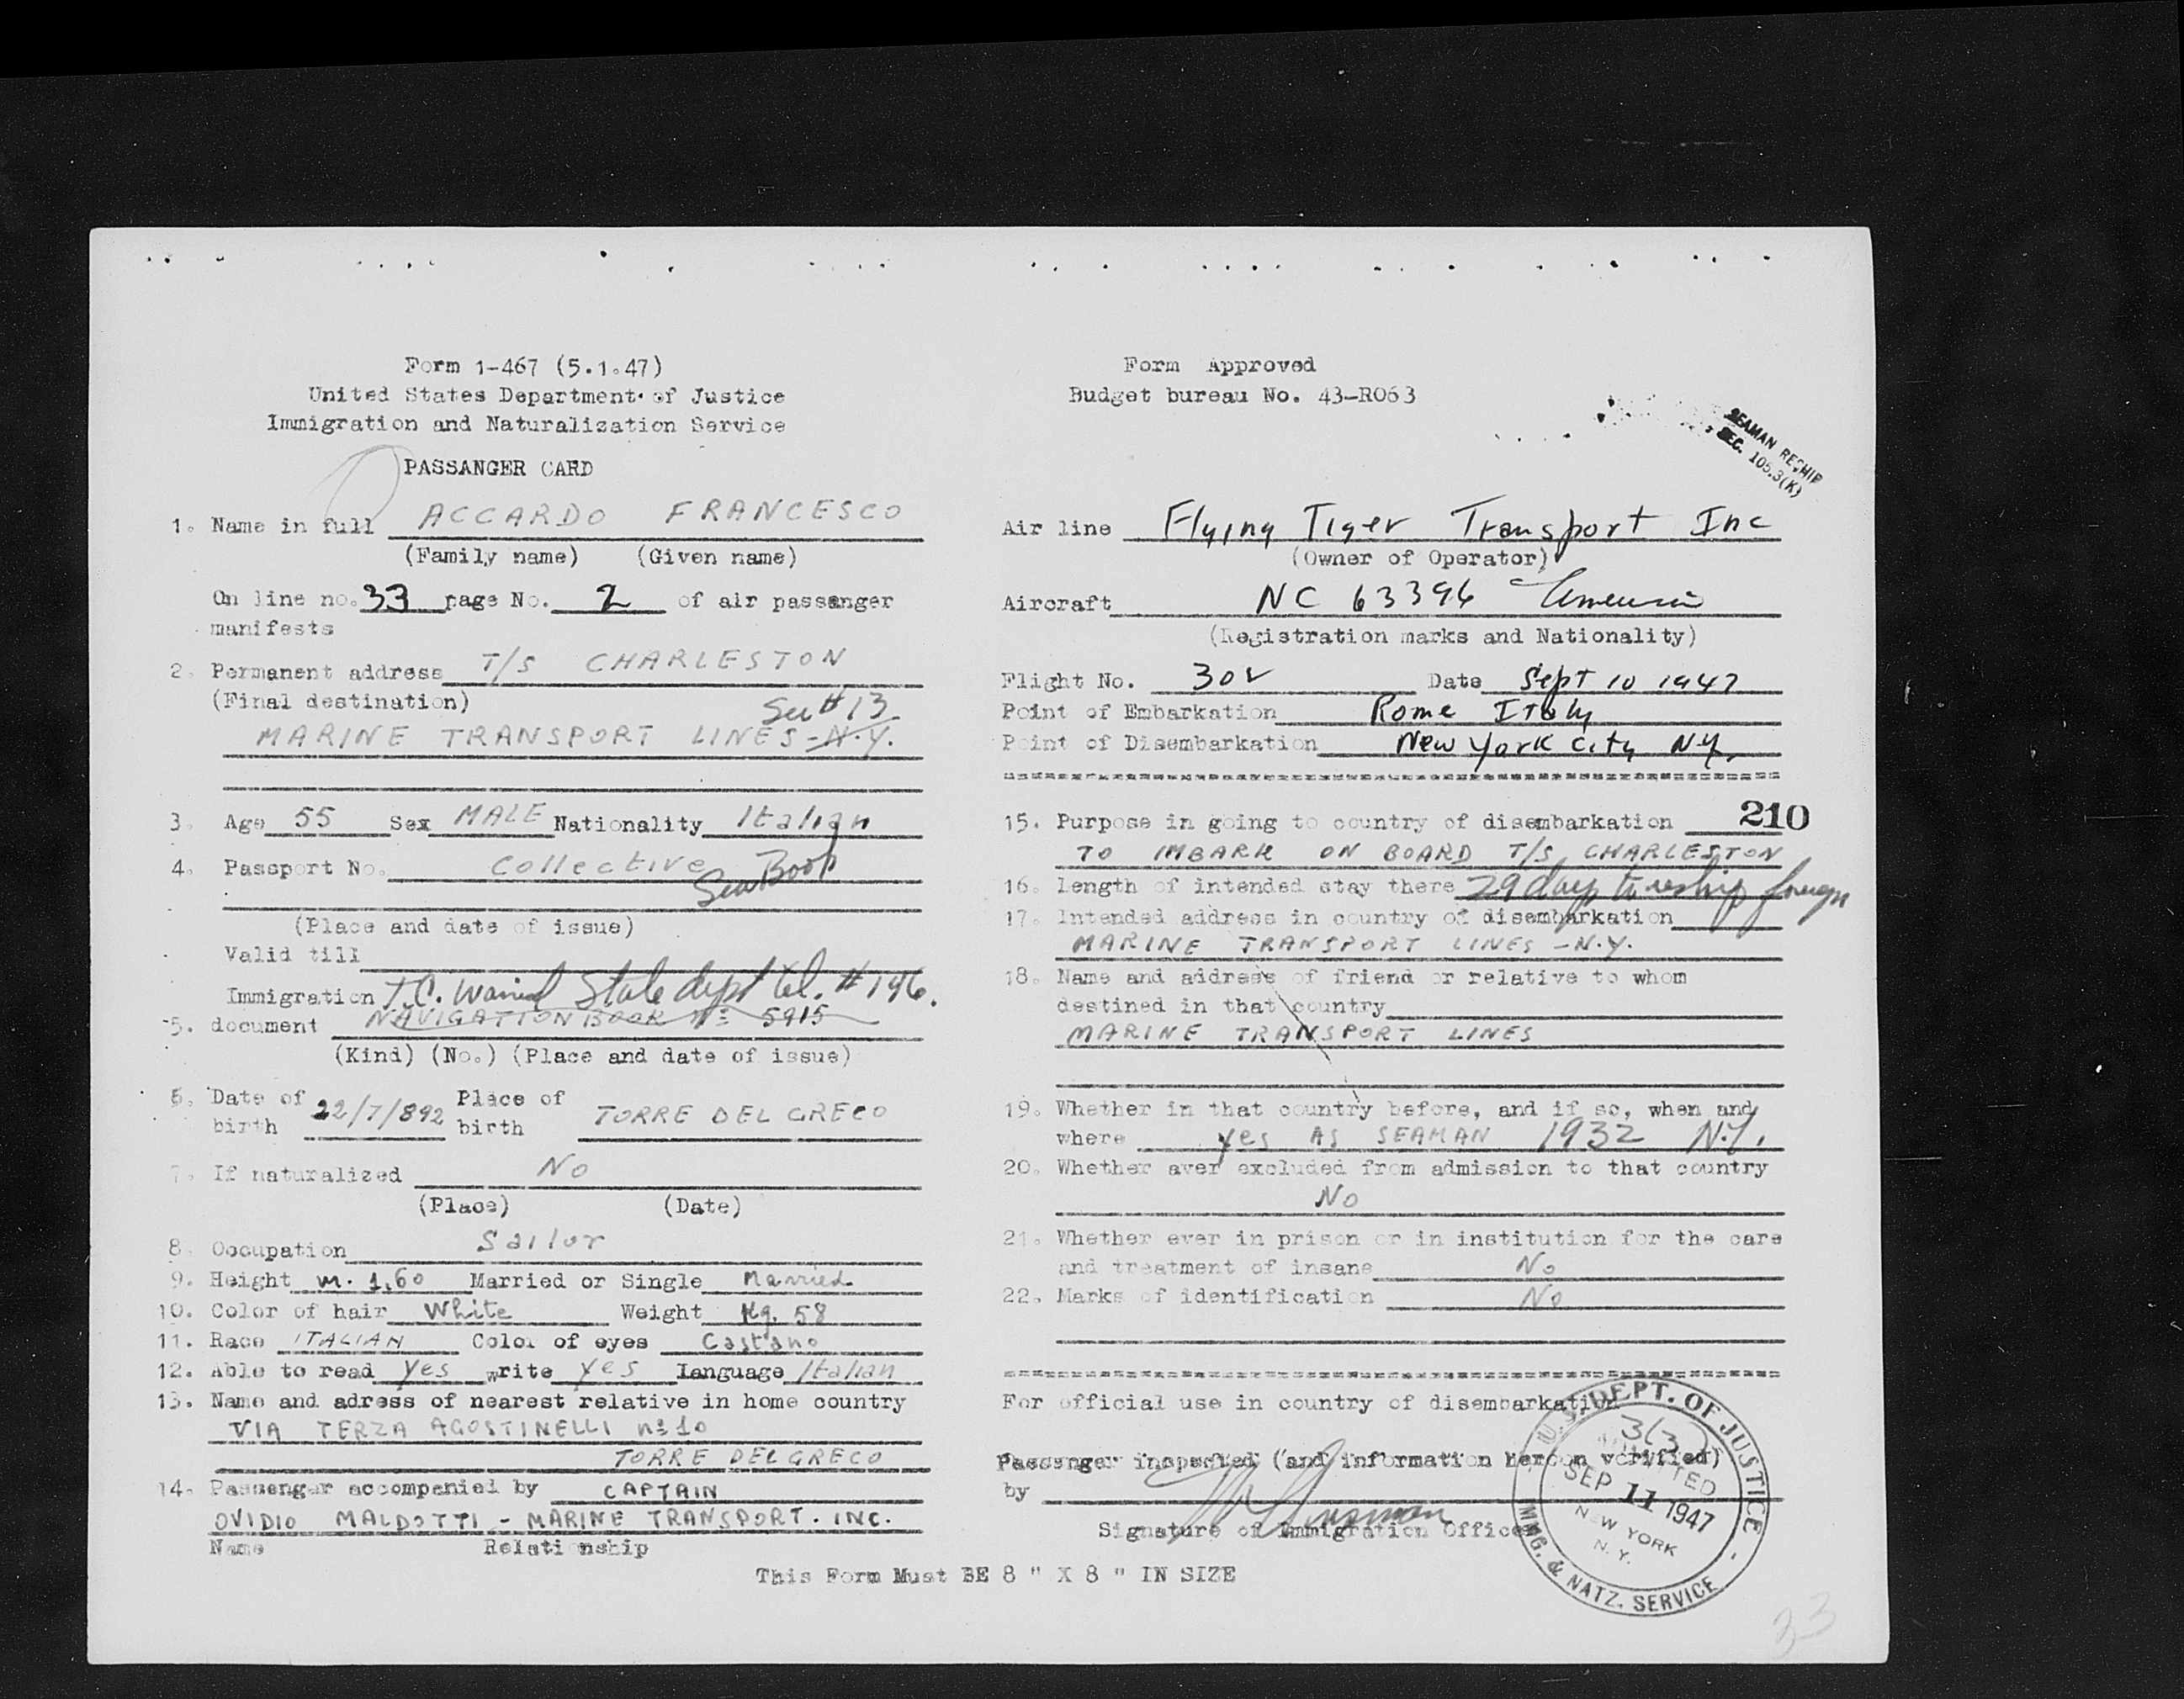 Form 1-467 (5.1.47)
United States Department of Justice
Immigration and Naturalization Service
PASSANGER CARD
1. Name in full ACCARDO FRANCESCO
(Family name) (Given name)
On line no. 33 page No. 2 of air passanger
manifests
2. Permanent address T/S CHARLESTON
(Final destination)
MARINE TRANSPORT LINES - N.Y.
3. Age 55 Sex MALE Nationality Italian
4. Passport No. Collective
Sea Book
(Place and date of issue)
Valid till
Immigration State dept tel. # 146.
5. document NAVIGATION BOOK Nº 5915
(Kind) (No.) (Place and date of issue)
6. Date of birth 22/7/892 Place of birth TORRE DEL GRECO
7. If naturalized No
(Place) (Date)
8. Occupation Sailor
9. Height m. 1,60 Married or Single Married
10. Color of hair White Weight Kg. 58
11. Race ITALIAN Color of eyes Castano
12. Able to read Yes write Yes Language Italian
13. Name and adress of nearest relative in home country
VIA TERZA AGOSTINELLI nº 10
TORRE DEL GRECO
14. Passenger accompanied by CAPTAIN
OVIDIO MALDOTTI - MARINE TRANSPORT. INC.
Name Relationship
Form Approved
Budget bureau No. 43-R063
SEAMAN RESHIP
SEC. 105.3(K)
Air line Flying Tiger Transport Inc
(Owner of Operator)
Aircraft NC 63396
(Registration marks and Nationality)
Flight No. 302 Date Sept 10 1947
Point of Embarkation Rome Italy
Point of Disembarkation New York City N.Y.
210
15. Purpose in going to country of disembarkation
TO IMBARK ON BOARD T/S CHARLESTON
16. length of intended stay there 29 days to reship foreign
17. Intended address in country of disembarkation
MARINE TRANSPORT LINES - N.Y.
18. Name and address of friend or relative to whom
destined in that country
MARINE TRANSPORT LINES
19. Whether in that country before, and if so, when and
where yes AS SEAMAN 1932 N.Y.
20. Whether aver excluded from admission to that country
No
21. Whether ever in prison or in institution for the care
and treatment of insane No
22. Marks of identification No
For official use in country of disembarkation
Passenger inspected (and information hereon verified)
by
Signature of Immigration Officer
U.S. DEPT. OF JUSTICE
313
ADMITTED
SEP 11 1947
NEW YORK
N.Y.
IMMG. & NATZ. SERVICE
This Form Must BE 8 " X 8 " IN SIZE
33